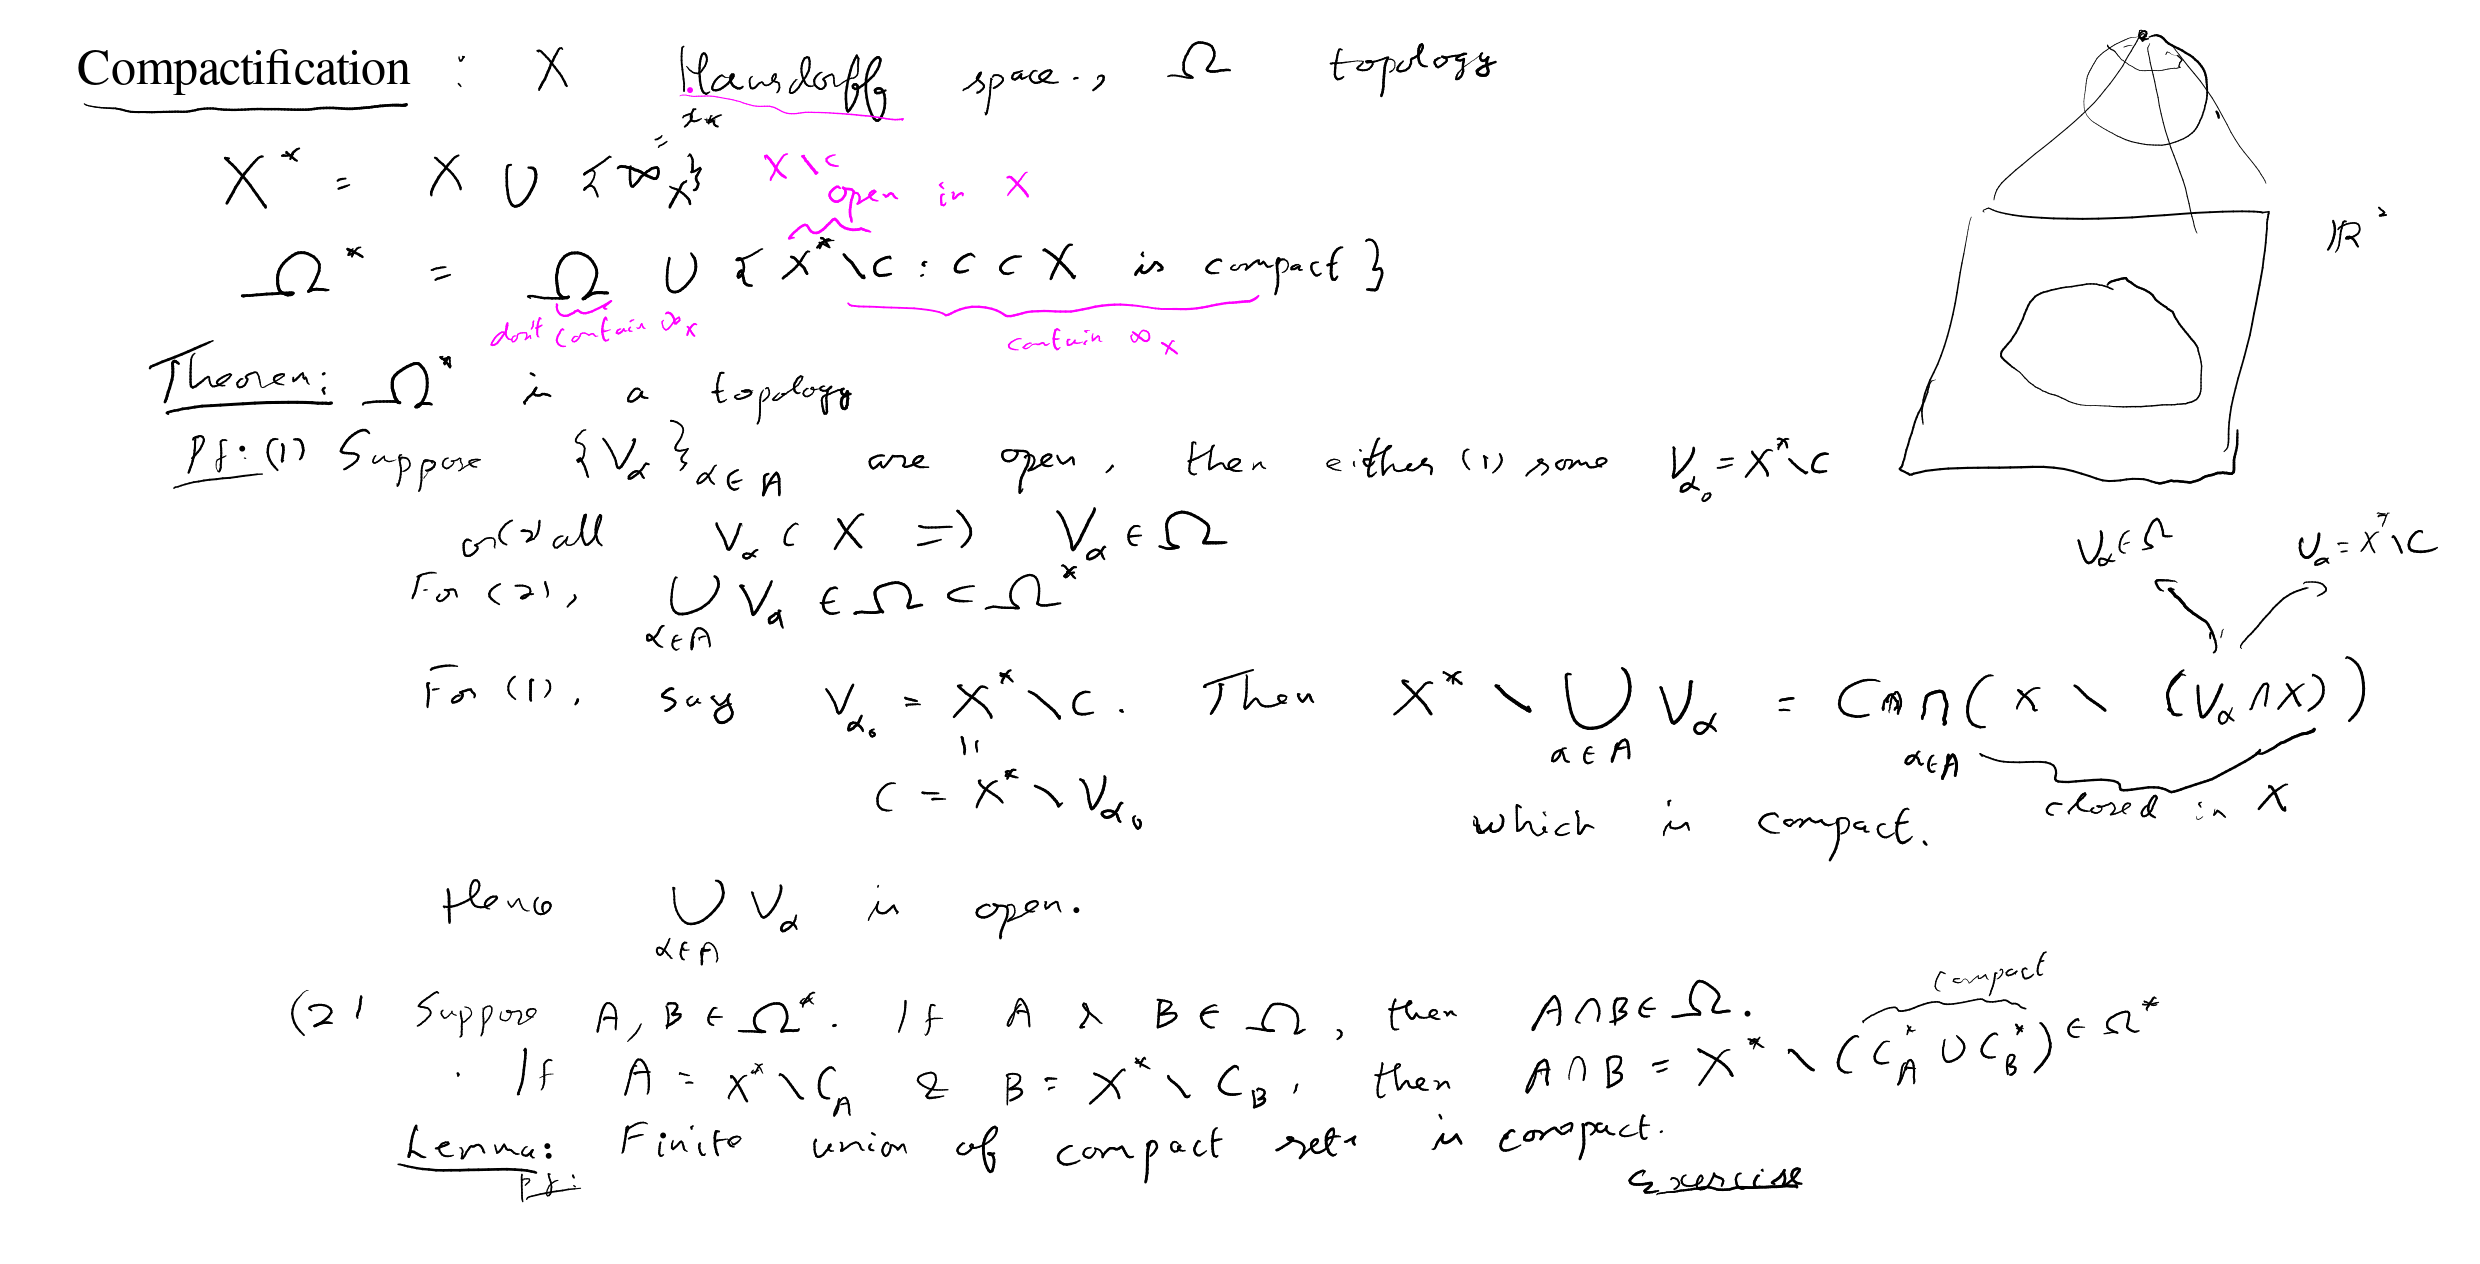 Compactification : X Hausdorff space., Ω topology
= x_*
X^* = X ∪ {∞_X}
X \ C open in X
Ω^* = Ω ∪ {X^* \ C : C ⊂ X is compact}
don't contain ∞_X
contain ∞_X
ℝ^2
Theorem: Ω^* is a topology
Pf: (1) Suppose {V_α}_{α∈A} are open, then either (1) some V_{α_0} = X^* \ C
or (2) all V_α ⊂ X => V_α ∈ Ω
For (2), ∪_{α∈A} V_α ∈ Ω ⊂ Ω^*
V_α ∈ Ω
V_α = X^* \ C
For (1), say V_{α_0} = X^* \ C. Then X^* \ ∪_{α∈A} V_α = C ∩ ∩_{α∈A} (X \ (V_α ∩ X))
closed in X
C = X^* \ V_{α_0}
which is compact.
Hence ∪_{α∈A} V_α is open.
compact
(2) Suppose A, B ∈ Ω^*. If A & B ∈ Ω, then A∩B ∈ Ω.
. If A = X^* \ C_A & B = X^* \ C_B, then A∩B = X^* \ (C_A^* ∪ C_B^*) ∈ Ω^*
Lemma: Finite union of compact sets is compact.
Pf: Exercise